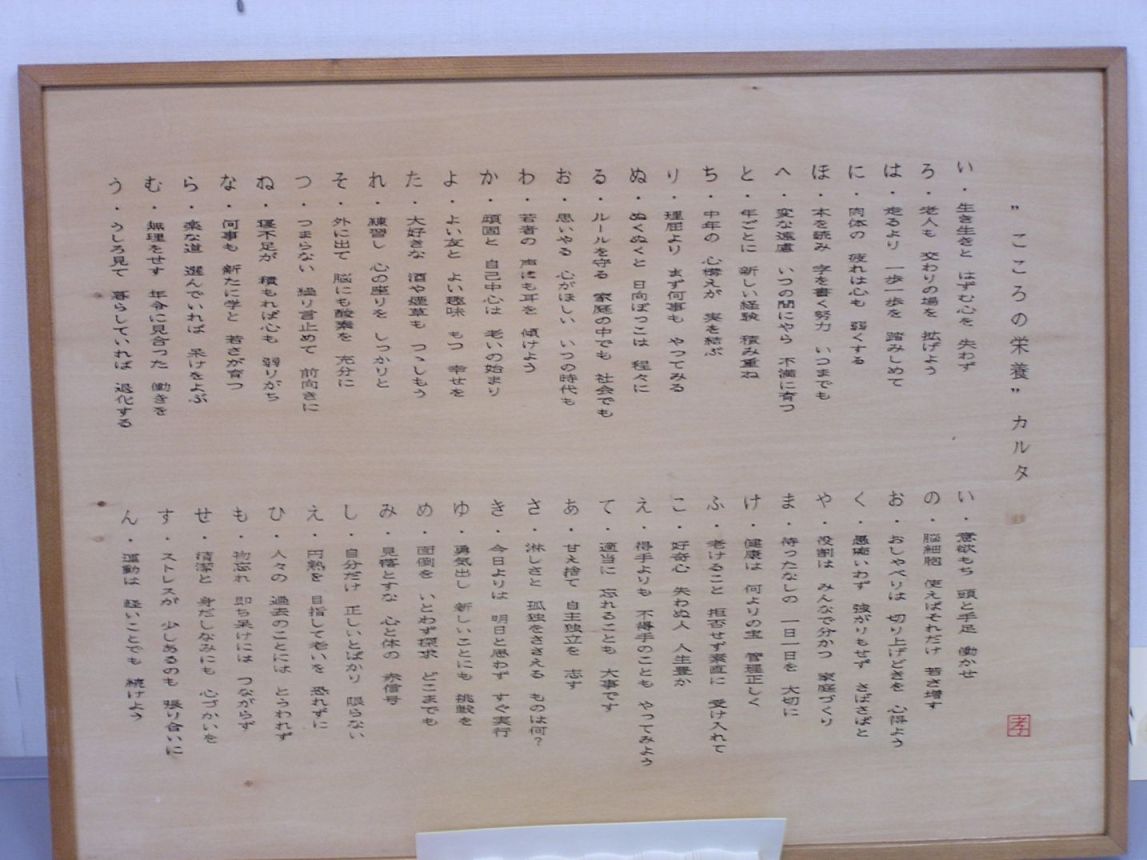 "こころの栄養" カルタ
い・生き生きと はずむ心を 失わず
ろ・老人も 交わりの場を 拡げよう
は・走るより 一歩一歩を 踏みしめて
に・肉体の 疲れは心も 弱くする
ほ・本を読み 字を書く努力 いつまでも
へ・変な遠慮 いつの間にやら 不満に育つ
と・年ごとに 新しい経験 積み重ね
ち・中年の 心構えが 実を結ぶ
り・理屈より まず何事も やってみる
ぬ・ぬくぬくと 日向ぼっこは 程々に
る・ルールを守る 家庭の中でも 社会でも
お・思いやる 心がほしい いつの時代も
わ・若者の 声にも耳を 傾けよう
か・頑固と 自己中心は 老いの始まり
よ・よい友と よい趣味 もつ 幸せを
た・大好きな 酒や煙草も つゝしもう
れ・練習し 心の座りを しっかりと
そ・外に出て 脳にも酸素を 充分に
つ・つまらない 繰り言止めて 前向きに
ね・寝不足が 積もれば心も 弱りがち
な・何事も 新たに学と 若さが育つ
ら・楽な道 選んでいれば 呆けをよぶ
む・無理をせず 年令に見合った 働きを
う・うしろ見て 暮らしていれば 退化する
い・意欲もち 頭と手足 働かせ
の・脳細胞 使えばそれだけ 若さ増す
お・おしゃべりは 切り上げどきを 心得よう
く・愚痴いわず 強がりもせず さばさばと
や・役割は みんなで分かつ 家庭づくり
ま・待ったなしの 一日一日を 大切に
け・健康は 何よりの宝 管理正しく
ふ・老けること 拒否せず素直に 受け入れて
こ・好奇心 失わぬ人 人生豊か
え・得手よりも 不得手のことも やってみよう
て・適当に 忘れることも 大事です
あ・甘え捨て 自主独立を 志す
さ・淋しさと 孤独をささえる ものは何?
き・今日よりは 明日と思わず すぐ実行
ゆ・勇気出し 新しいことにも 挑戦を
め・面倒を いとわず探求 どこまでも
み・見落とすな 心と体の 赤信号
し・自分だけ 正しいとばかり 限らない
え・円熟を 目指して老いを 恐れずに
ひ・人々の 過去のことには とらわれず
も・物忘れ 即ち呆けには つながらず
せ・清潔と 身だしなみにも 心づかいを
す・ストレスが 少しあるのも 張り合いに
ん・運動は 軽いことでも 続けよう
孝